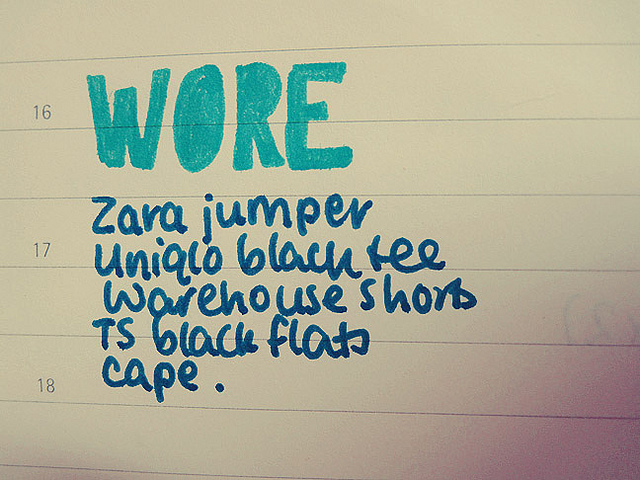 16
WORE
Zara jumper
17
Uniqlo black tee
Warehouse shorts
TS black flats
18
cape.